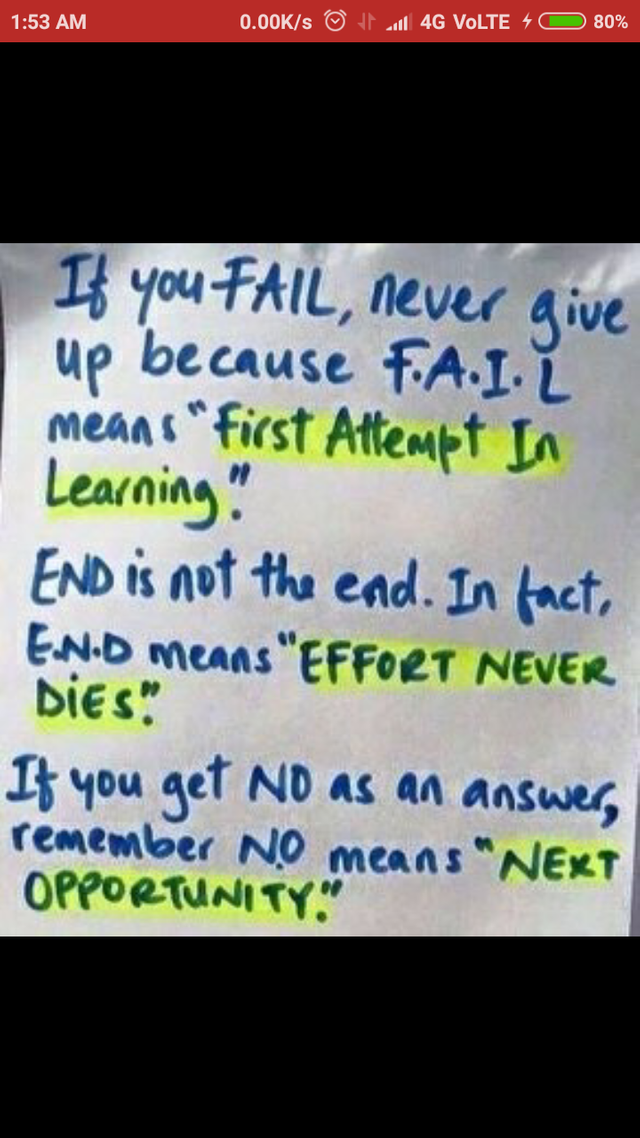 1:53 AM 0.00K/s 4G VoLTE 80%
If you FAIL, never give
up because F.A.I.L
means "First Attempt In
Learning."
END is not the end. In fact,
E.N.D means "EFFORT NEVER
DiEs."
If you get NO as an answer,
remember N.O means "NEXT
OPPORTUNITY."